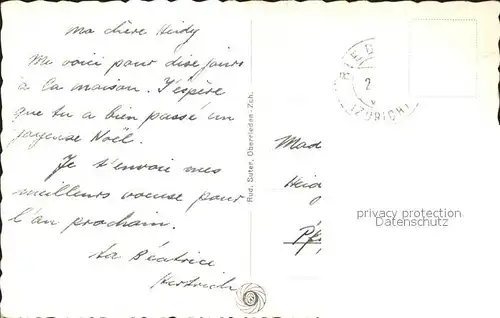 ma chère Heidy
Me voici pour dix jours
à la maison. J'espère
que tu a bien passé un
joyeuse Noël.
Je t'envoie mes
meilleurs voeuse pour
l'an prochain.
ta Béatrice
Rud. Suter, Oberrieden-Zch.
2
(ZÜRICH)
Mad
Heid
Pf
privacy protection
Datenschutz